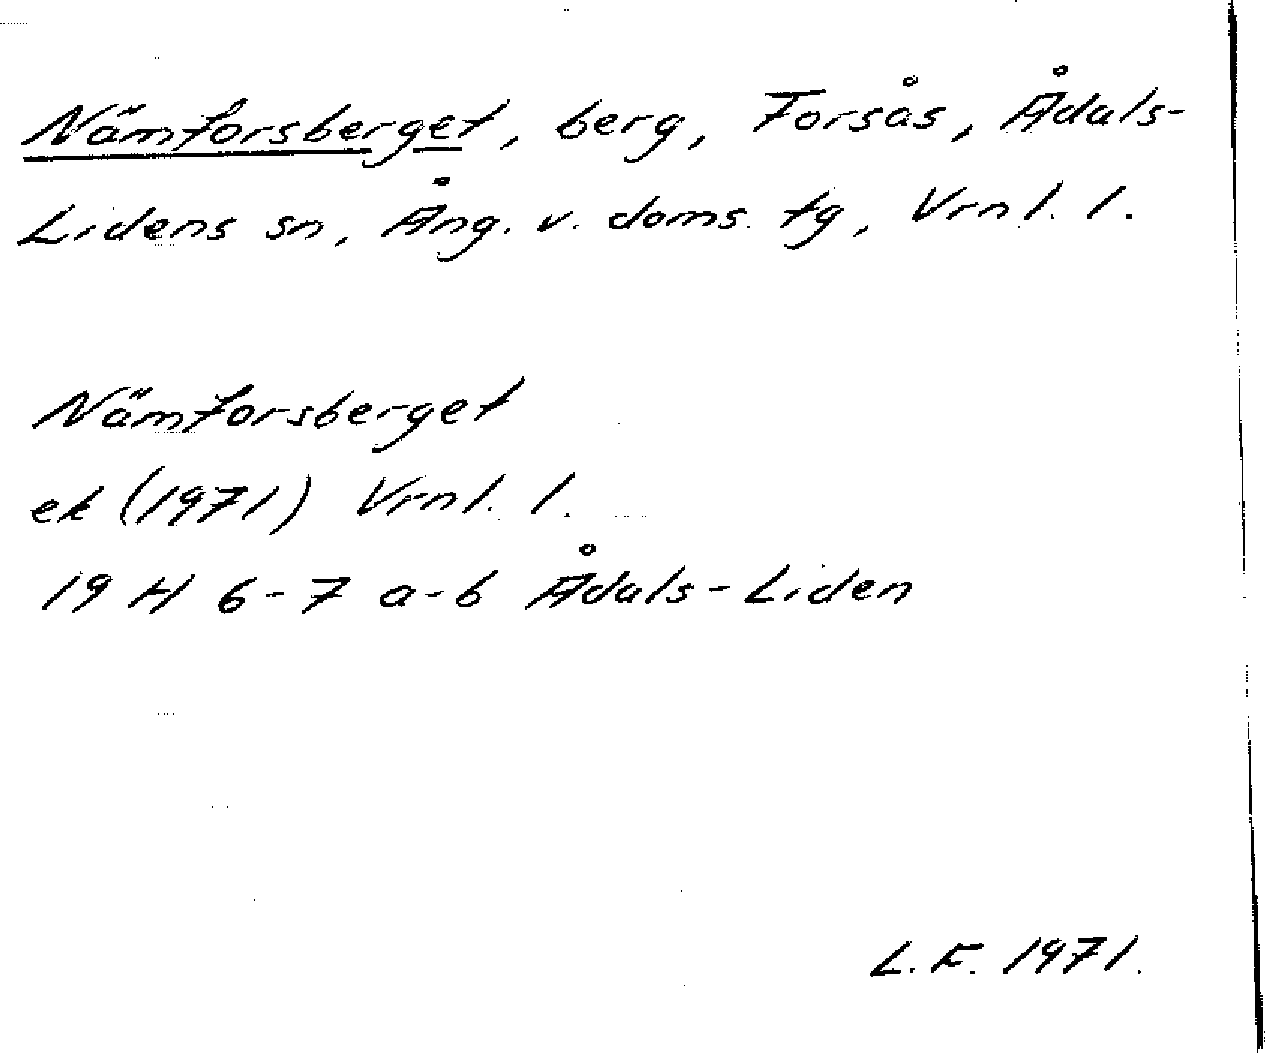 Nämforsberget, berg, Forsås, Ådals-
Lidens sn, Ång. v. doms. tg, Vrnl. l.
Nämforsberget
ek (1971) Vrnl. l.
19 H 6-7 a-b Ådals-Liden
L.F. 1971.